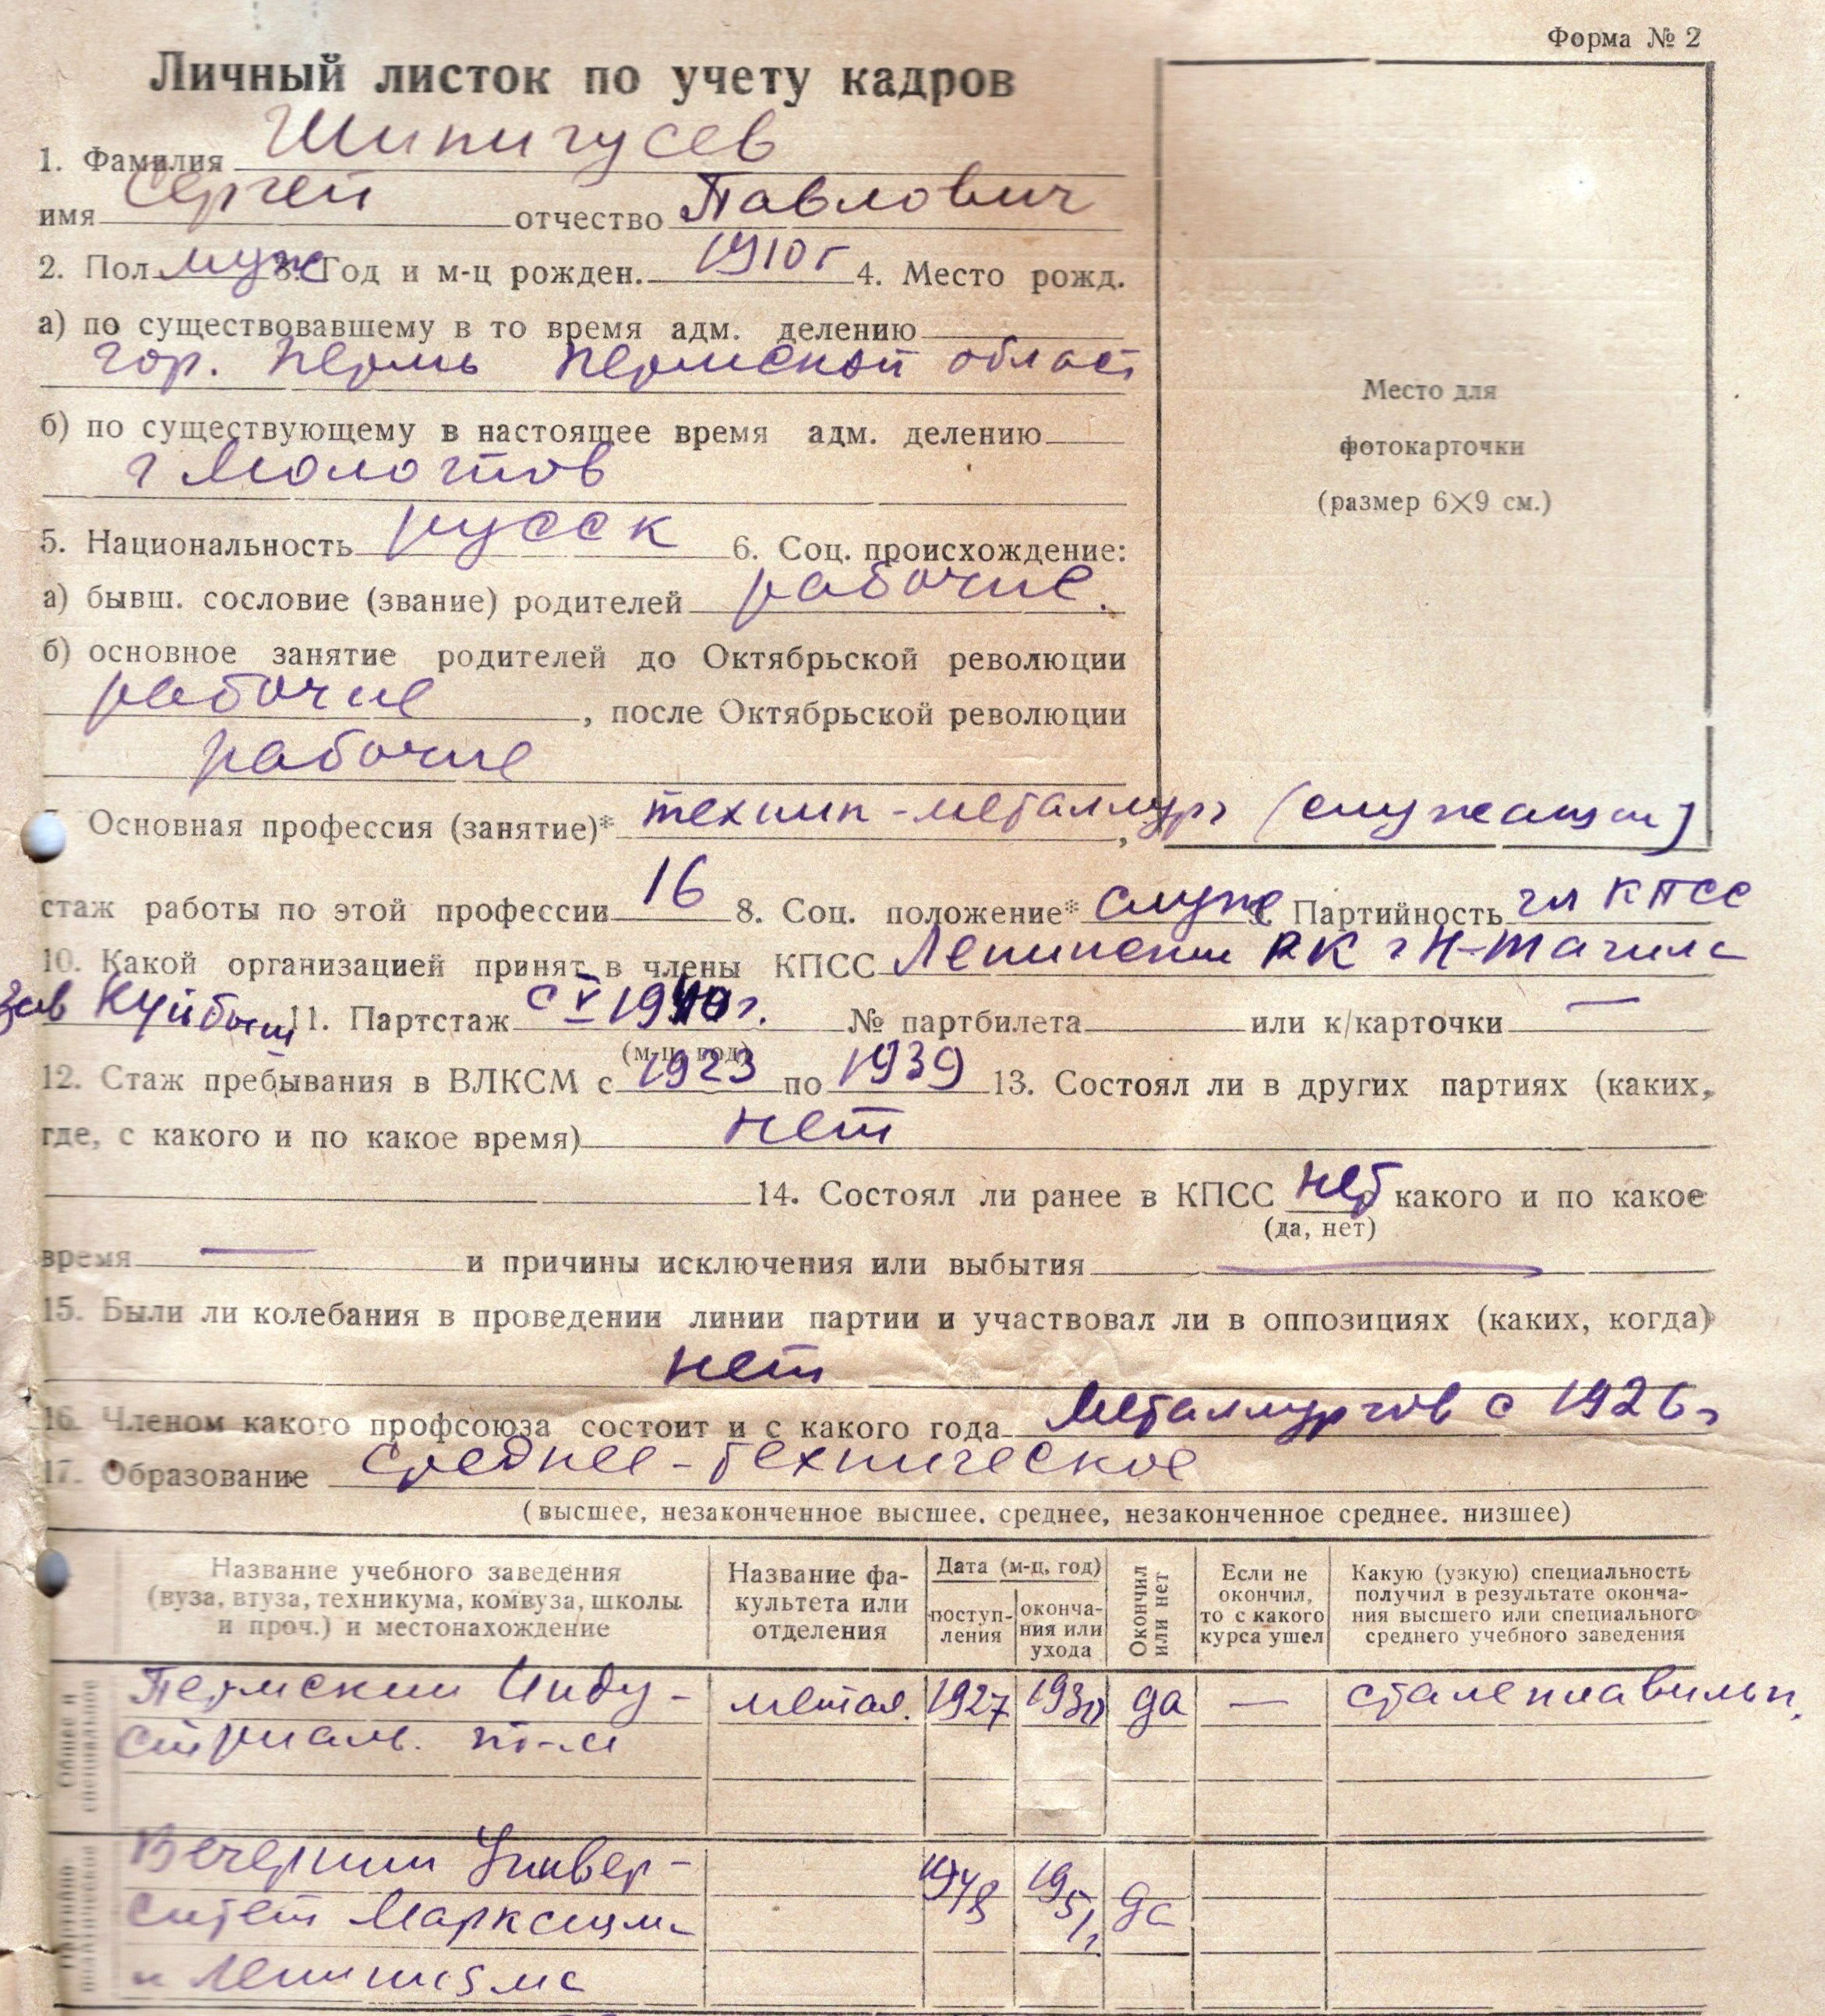 Форма № 2
Личный листок по учету кадров
1. Фамилия Шипигусев
имя Сергей отчество Павлович
2. Пол муж 3. Год и м-ц рожден. 1910 г 4. Место рожд.
а) по существовавшему в то время адм. делению
гор. Пермь Пермской област
б) по существующему в настоящее время адм. делению
г Молотов
Место для
фотокарточки
(размер 6×9 см.)
5. Национальность русск 6. Соц. происхождение:
а) бывш. сословие (звание) родителей рабочие.
б) основное занятие родителей до Октябрьской революции
рабочие, после Октябрьской революции
рабочие
Основная профессия (занятие)* техник-металлург (служащий)
стаж работы по этой профессии 16 8. Соц. положение* служ 9. Партийность чл КПСС
10. Какой организацией принят в члены КПСС Ленинским РК г Н-Тагила
11. Партстаж с V 1940 г. № партбилета или к/карточки —
(м-ц, год)
12. Стаж пребывания в ВЛКСМ с 1923 по 1939 13. Состоял ли в других партиях (каких,
где, с какого и по какое время) нет
14. Состоял ли ранее в КПСС нет какого и по какое
(да, нет)
время — и причины исключения или выбытия —
15. Были ли колебания в проведении линии партии и участвовал ли в оппозициях (каких, когда)
нет
16. Членом какого профсоюза состоит и с какого года Металлургов с 1926 г
17. Образование среднее-техническое
(высшее, незаконченное высшее. среднее, незаконченное среднее. низшее)
Название учебного заведения
(вуза, втуза, техникума, комвуза, школы
и проч.) и местонахождение
Название фа-
культета или
отделения
Дата (м-ц, год)
поступ-
ления
оконча-
ния или
ухода
Окончил
или нет
Если не
окончил,
то с какого
курса ушел
Какую (узкую) специальность
получил в результате оконча-
ния высшего или специального
среднего учебного заведения
Общее и
специальное
Пермский Инду- метал. 1927 1930 да — сталеплавильн.
стриаль. т-м
Вечерний Универ- 1948 1951 да
ситет Марксизм
Ленинизма